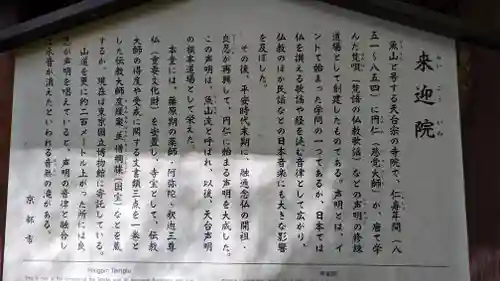 来迎院
らい ごう いん
魚山と号する天台宗の寺院で、仁寿年間(八
五一～八五四)に円仁(慈覚大師)が、唐で学
んだ梵唄(梵語の仏教歌謡)などの声明の修練
道場として創建したものである。声明とは、イ
ンドで始まった学問の一つであるが、日本では
仏を讃える歌謡や経を読む音律として広がり、
仏教のほか民謡などの日本音楽にも大きな影響
を及ぼした。
その後、平安時代末期に、融通念仏の開祖・
良忍が再興して、円仁に始まる声明を大成した。
この声明は、魚山流と呼ばれ、以後、天台声明
の根本道場として栄えた。
本堂には、藤原期の薬師・阿弥陀・釈迦三尊
仏(重要文化財)を安置し、寺宝として、伝教
大師の得度や受戒に関する文書類三点を一巻と
した伝教大師度縁案並僧綱牒(国宝)などを蔵
するが、現在は東京国立博物館に寄託している。
山道を更に約二百メートル上がった所には良
忍が声明を唱えていると、声明の音律と融合し
て水音が消えたといわれる音無の滝がある。
京都市
Raigoin Temple